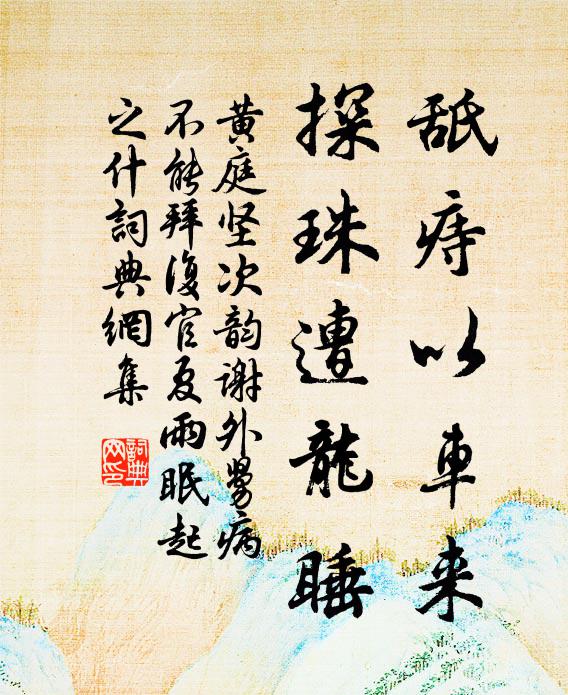 舐痔以車来
探珠遭龍睡
黄庭坚次韵谢外舅病
不能拜復官夏雨眠起
之什詞典網集
詞典网印